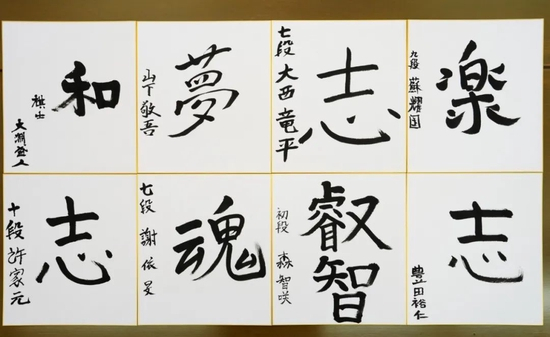 楽
九段 蘇耀国
志
七段 大西竜平
夢
山下敬吾
和
棋士
大淵盛人
志
豊田裕仁
叡智
初段 森智咲
魂
七段 謝依旻
志
十段 許家元